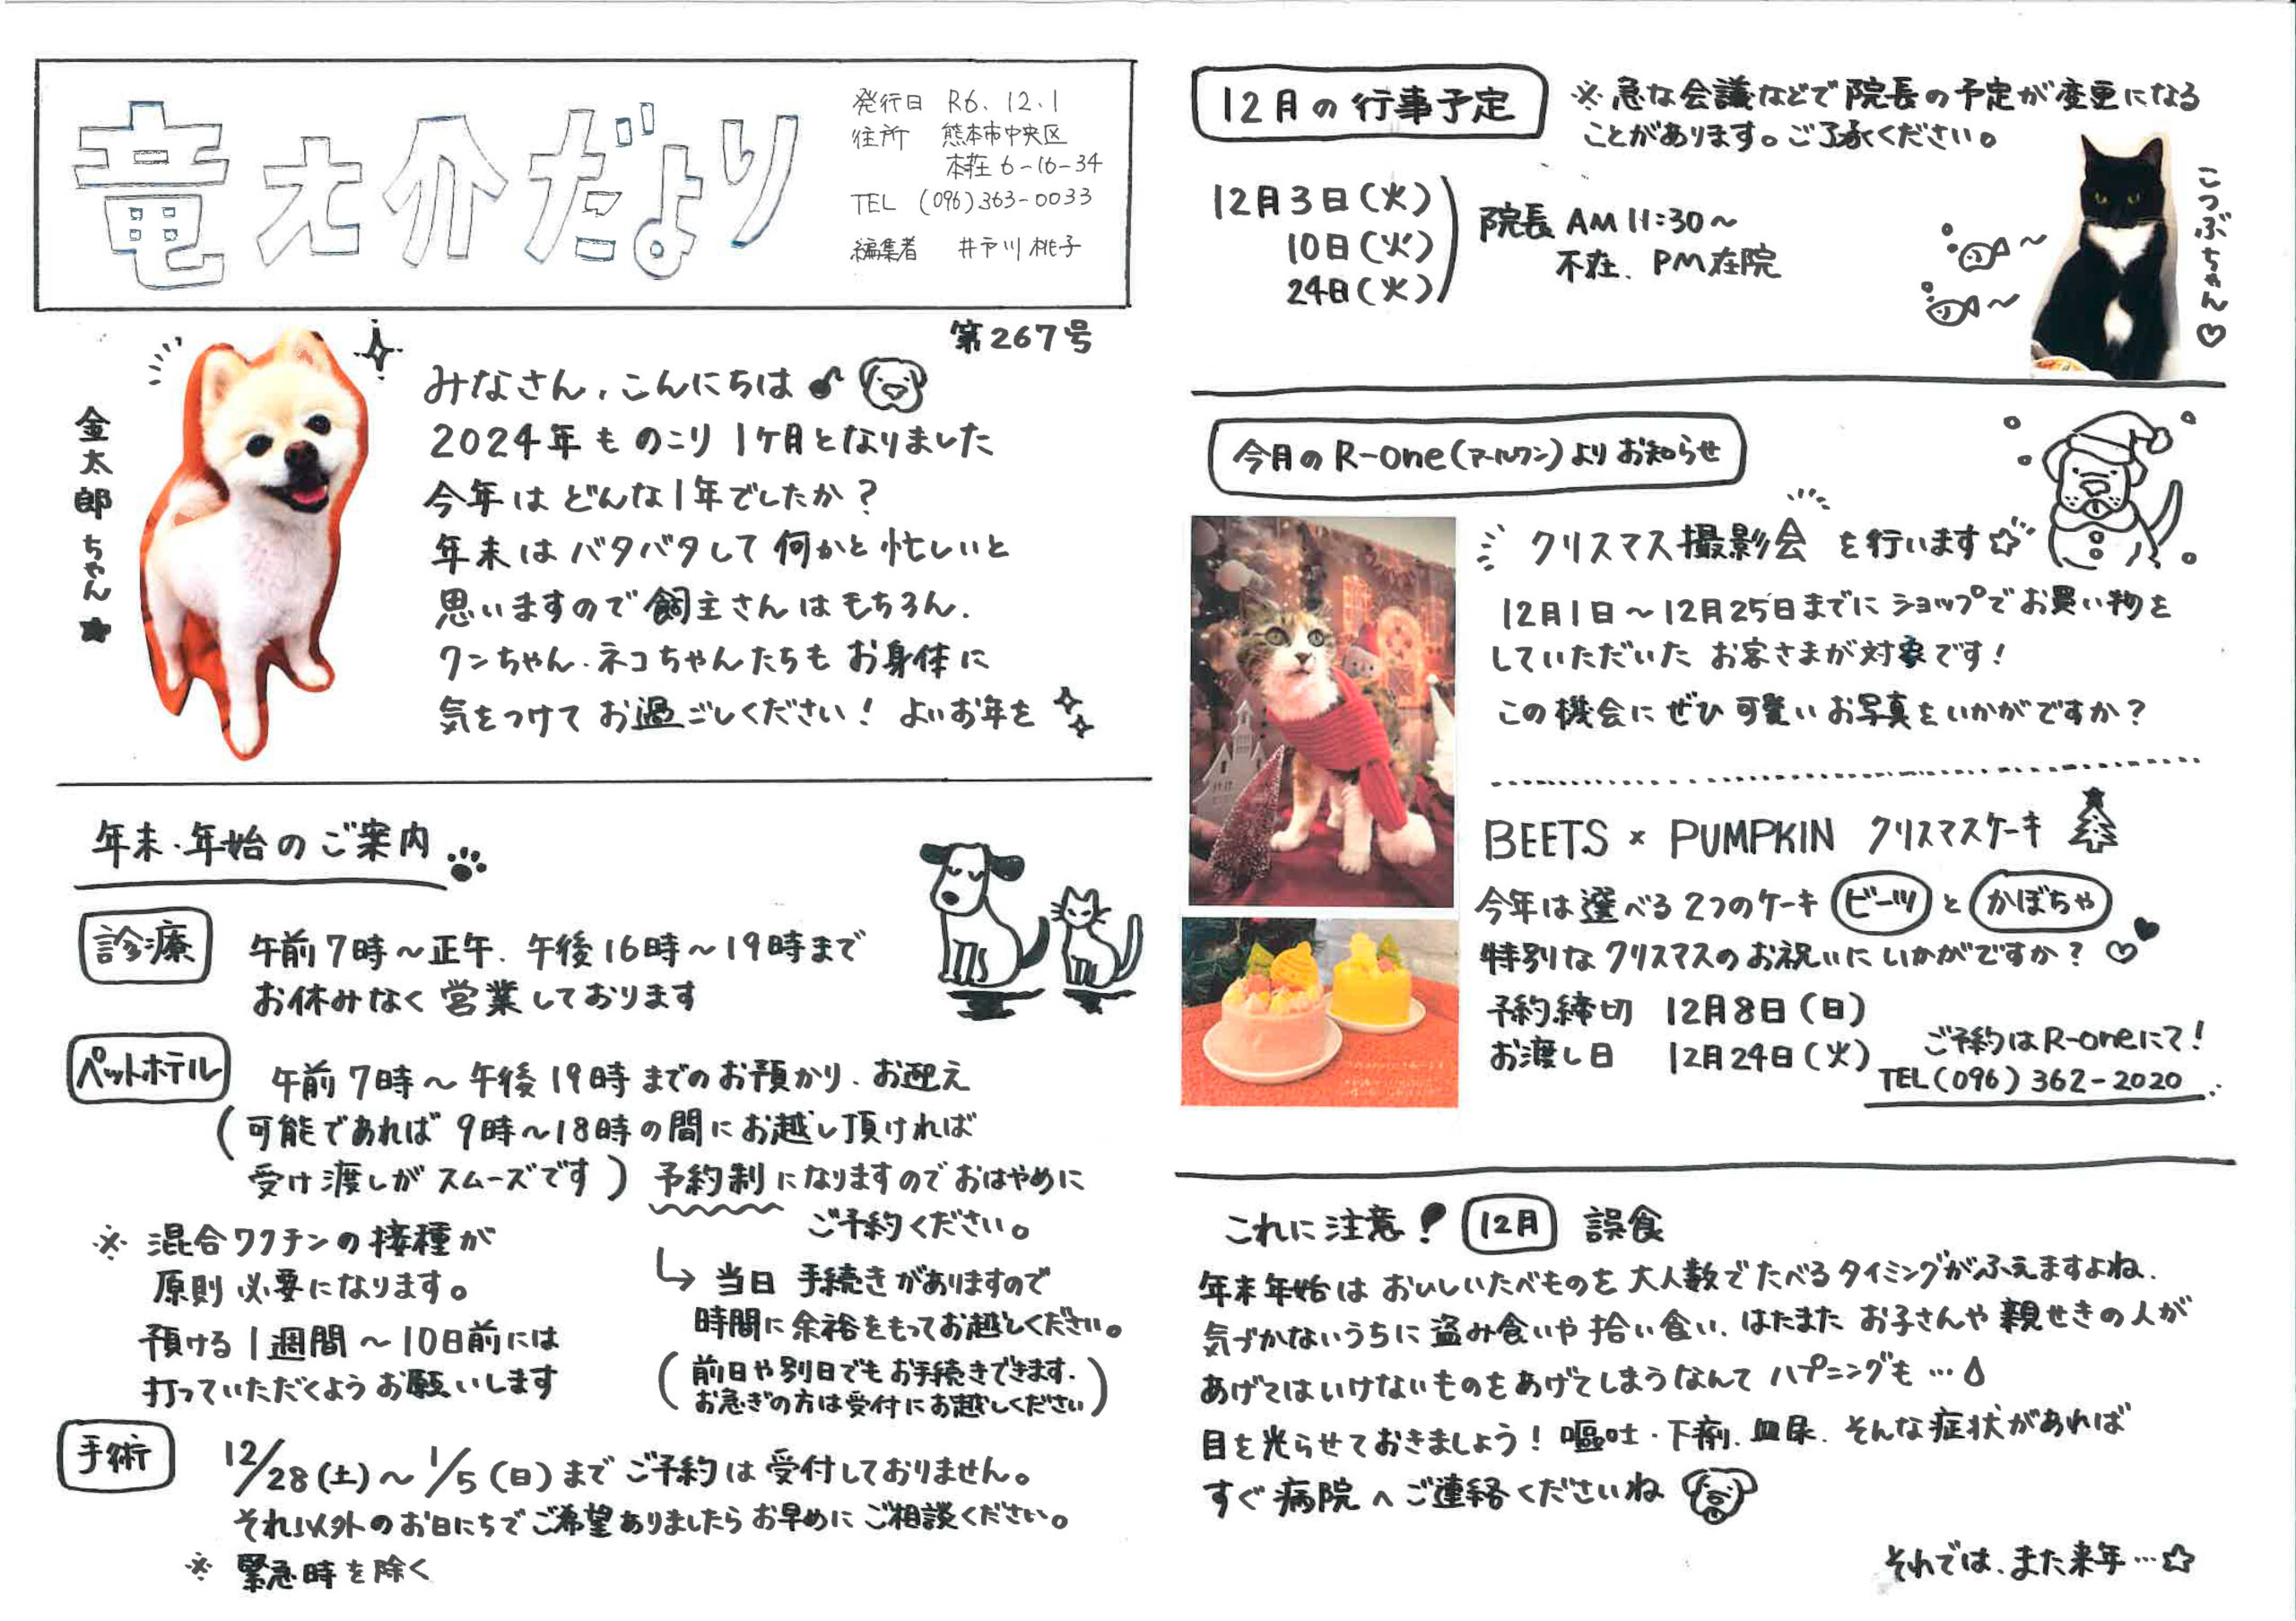 竜之介だより
発行日 R6.12.1
住所 熊本市中央区
本荘6-16-34
TEL (096)363-0033
編集者 井戸川桃子
第267号
金太郎ちゃん★
みなさん、こんにちは♪
2024年ものこり1ヶ月となりました
今年はどんな1年でしたか?
年末はバタバタして何かと忙しいと
思いますので飼主さんはもちろん、
ワンちゃん・ネコちゃんたちもお身体に
気をつけてお過ごしください! よいお年を
年末・年始のご案内
診療
午前7時~正午、午後16時~19時まで
お休みなく営業しております
ペットホテル
午前7時~午後19時までのお預かり、お迎え
(可能であれば9時~18時の間にお越し頂ければ
受け渡しがスムーズです) 予約制になりますのでおはやめに
ご予約ください。
※混合ワクチンの接種が
原則必要になります。
預ける1週間~10日前には
打っていただくようお願いします
↳当日手続きがありますので
時間に余裕をもってお越しください。
(前日や別日でもお手続きできます、
お急ぎの方は受付にお越しください)
手術
12/28(土)~1/5(日)までご予約は受付しておりません。
それ以外のお日にちでご希望ありましたらお早めにご相談ください。
※緊急時を除く
12月の行事予定
※急な会議などで院長の予定が変更になる
ことがあります。ご了承ください。
12月3日(火)
10日(火)
24日(火)
院長 AM11:30~
不在、PM在院
こつぶちゃん♡
今月のR-one(アールワン)よりお知らせ
クリスマス撮影会を行います☆
12月1日~12月25日までにショップでお買い物を
していただいたお客さまが対象です!
この機会にぜひ可愛いお写真をいかがですか?
BEETS × PUMPKIN クリスマスケーキ
今年は選べる2つのケーキ ビーツ と かぼちゃ
特別なクリスマスのお祝いにいかがですか?♡
予約締切 12月8日(日)
お渡し日 12月24日(火)
ご予約はR-oneにて!
TEL(096)362-2020
これに注意! 12月 誤食
年末年始はおいしいたべものを大人数でたべるタイミングがふえますよね、
気づかないうちに盗み食いや拾い食い、はたまたお子さんや親せきの人が
あげてはいけないものをあげてしまうなんてハプニングも…
目を光らせておきましょう! 嘔吐・下痢、血尿、そんな症状があれば
すぐ病院へご連絡くださいね
それでは、また来年…☆